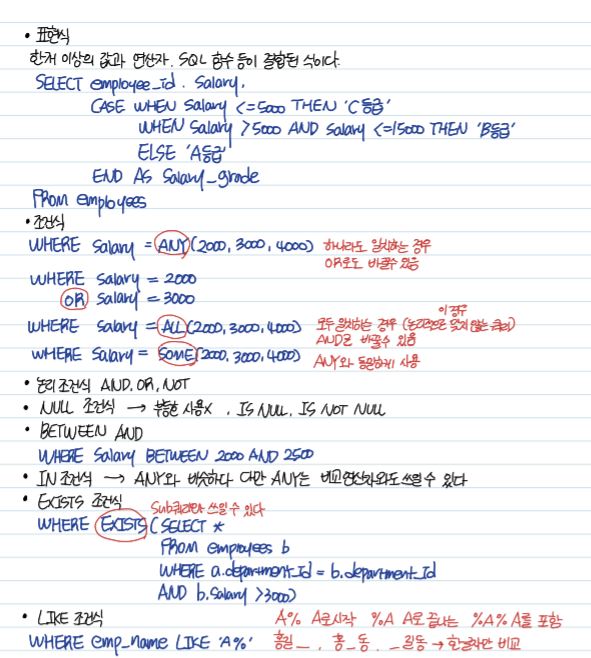 • 표현식
한개 이상의 값과 연산자. SQL 함수 등이 결합된 식이다.
SELECT employee_id. Salary,
CASE WHEN Salary <=5000 THEN 'C등급'
WHEN Salary >5000 AND Salary <=15000 THEN 'B등급'
ELSE 'A등급'
END AS Salary_grade
FROM employees
• 조건식
WHERE Salary = ANY(2000, 3000, 4000) 하나라도 일치하는 경우
OR로도 바꿀수 있음
WHERE Salary = 2000
OR Salary = 3000
이 경우
WHERE Salary = ALL(2000, 3000, 4000) 모두 일치하는 경우 (논리적으로 맞지 않는 쿼리)
AND로 바꿀수 있음
WHERE Salary = SOME(2000, 3000, 4000) ANY와 동일하게 사용
• 논리 조건식 AND, OR, NOT
• NULL 조건식 → 부등호 사용X , IS NULL, IS NOT NULL
• BETWEEN AND
WHERE Salary BETWEEN 2000 AND 2500
• IN 조건식 → ANY와 비슷하다 다만 ANY는 비교연산자와도 쓰일 수 있다
• EXISTS 조건식 Sub쿼리만 쓰일 수 있다
WHERE EXISTS (SELECT *
FROM employees b
WHERE a.department_Id = b.department_Id
AND b.Salary >3000)
• LIKE 조건식 A% A로시작 %A A로 끝나는 %A% A를 포함
WHERE emp_name LIKE 'A%' 홍길_ , 홍_동 , _길동 → 한글자만 비교